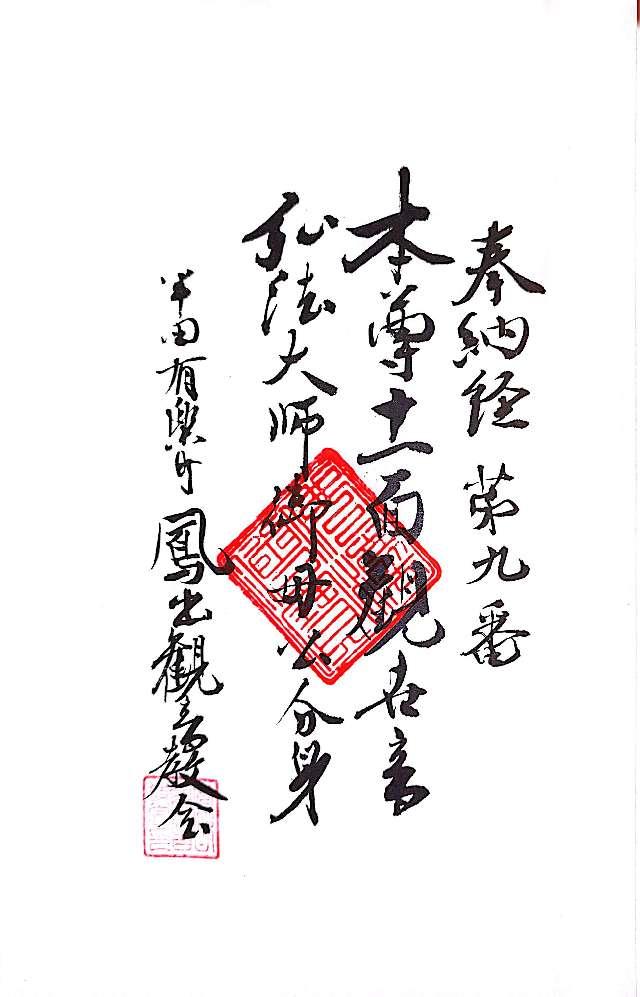 奉納経 第九番
本尊十一面觀世音
弘法大師御母公分身
半田有樂町 鳳出觀音教会